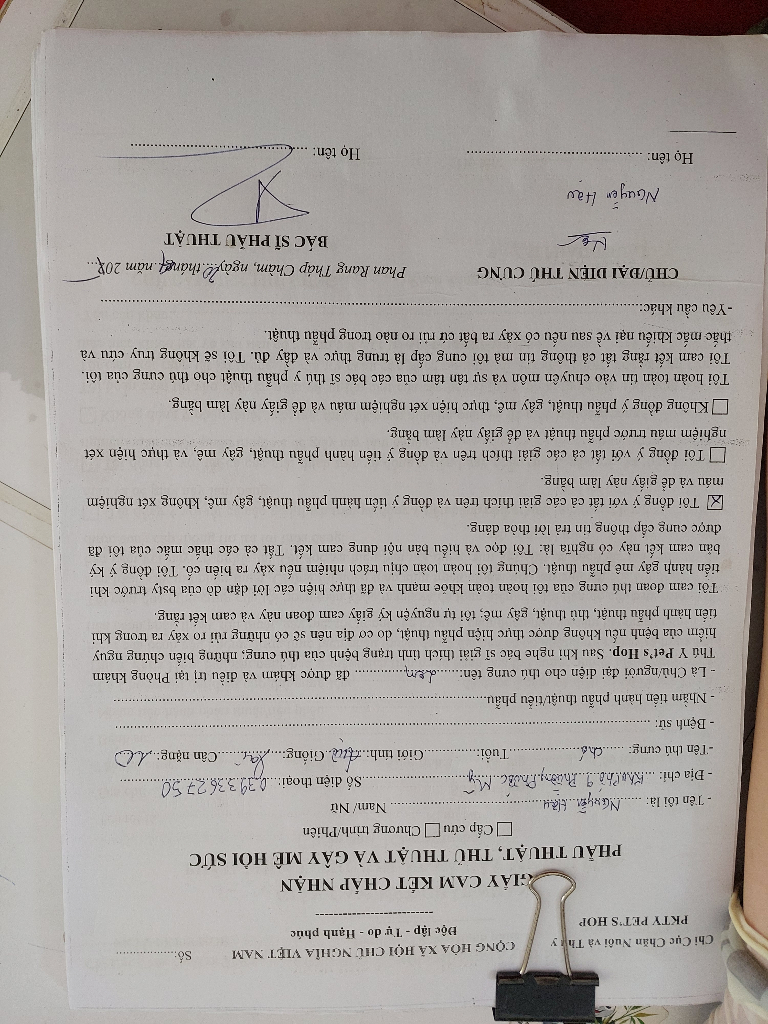 Chi Cục Chăn Nuôi và Thú y CỘNG HÒA XÃ HỘI CHỦ NGHĨA VIỆT NAM Số:....................
PKTY PET'S HOP Độc lập - Tự do - Hạnh phúc
GIẤY CAM KẾT CHẤP NHẬN
PHẪU THUẬT, THỦ THUẬT VÀ GÂY MÊ HỒI SỨC
☐ Cấp cứu ☐ Chương trình/Phiên
- Tên tôi là: Nguyễn Hậu Nam/ Nữ
- Địa chỉ: Khu phố 9 Phường Phước Mỹ Số điện thoại: 0393362750
-Tên thú cưng: chó Tuổi: Giới tính: đực Giống: Cân nặng:
- Bệnh sử:
- Nhằm tiến hành phẫu thuật/tiểu phẫu
- Là Chủ/người đại diện cho thú cưng tên: Lem đã được khám và điều trị tại Phòng khám
Thú Y Pet's Hop. Sau khi nghe bác sĩ giải thích tình trạng bệnh của thú cưng; những biến chứng nguy
hiểm của bệnh nếu không được thực hiện phẫu thuật, do cơ địa nên sẽ có những rủi ro xảy ra trong khi
tiến hành phẫu thuật, thủ thuật, gây mê; tôi tự nguyện ký giấy cam đoan này và cam kết rằng.
Tôi cam đoan thú cưng của tôi hoàn toàn khỏe mạnh và đã thực hiện các lời dặn dò của bsty trước khi
tiến hành gây mê phẫu thuật. Chúng tôi hoàn toàn chịu trách nhiệm nếu xảy ra biến cố. Tôi đồng ý ký
bản cam kết này có nghĩa là: Tôi đọc và hiểu bản nội dung cam kết. Tất cả các thắc mắc của tôi đã
được cung cấp thông tin trả lời thỏa đáng.
☒ Tôi đồng ý với tất cả các giải thích trên và đồng ý tiến hành phẫu thuật, gây mê, không xét nghiệm
máu và để giấy này làm bằng.
☐ Tôi đồng ý với tất cả các giải thích trên và đồng ý tiến hành phẫu thuật, gây mê, và thực hiện xét
nghiệm máu trước phẫu thuật và để giấy này làm bằng.
☐ Không đồng ý phẫu thuật, gây mê, thực hiện xét nghiệm máu và để giấy này làm bằng.
Tôi hoàn toàn tin vào chuyên môn và sự tận tâm của các bác sĩ thú y phẫu thuật cho thú cưng của tôi.
Tôi cam kết rằng tất cả thông tin mà tôi cung cấp là trung thực và đầy đủ. Tôi sẽ không truy cứu và
thắc mắc khiếu nại về sau nếu có xảy ra bất cứ rủi ro nào trong phẫu thuật.
-Yêu cầu khác:
Phan Rang Tháp Chàm, ngày tháng năm 202
CHỦ/ĐẠI DIỆN THÚ CƯNG BÁC SĨ PHẪU THUẬT
Nguyễn Hậu
Họ tên: Họ tên: